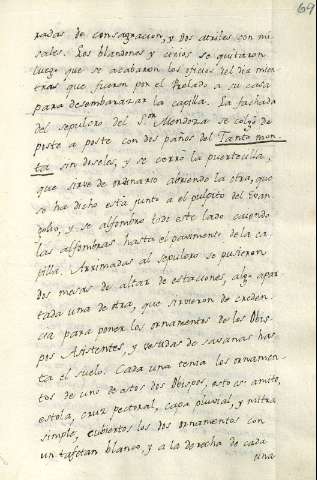 69
radas de consagracion, y dos atriles con mi-
sales. Los blandones y cirios se quitaron
luego que se acabaron los oficios del dia mien-
tras que fueron por el Prelado a su casa
para desembarazar la capilla. La fachada
del sepulcro del S.or Mendoza se colgó de
poste a poste con dos paños del Tanto mon-
ta sin doseles, y se cerró la puertecilla,
que sirve de ordinario abriendo la otra, que
se ha dicho está junto a el pulpito del Evan-
gelio, y se alfombró todo este lado cayendo
las alfombras hasta el pavimento de la ca-
pilla. Arrimadas al sepulcro se pusieron
dos mesas de altar de estaciones, algo apar-
tada una de otra, que sirvieron de creden-
cia para poner los ornamentos de los Obis-
pos Asistentes, y vestidas de savanas has-
ta el suelo. Cada una tenia los ornamen-
tos de uno de estos dos Obispos, esto es: amito,
estola, cruz pectoral, capa pluvial, y mitra
simple, cubiertos los dos ornamentos con
un tafetan blanco, y a la derecha de cada
una